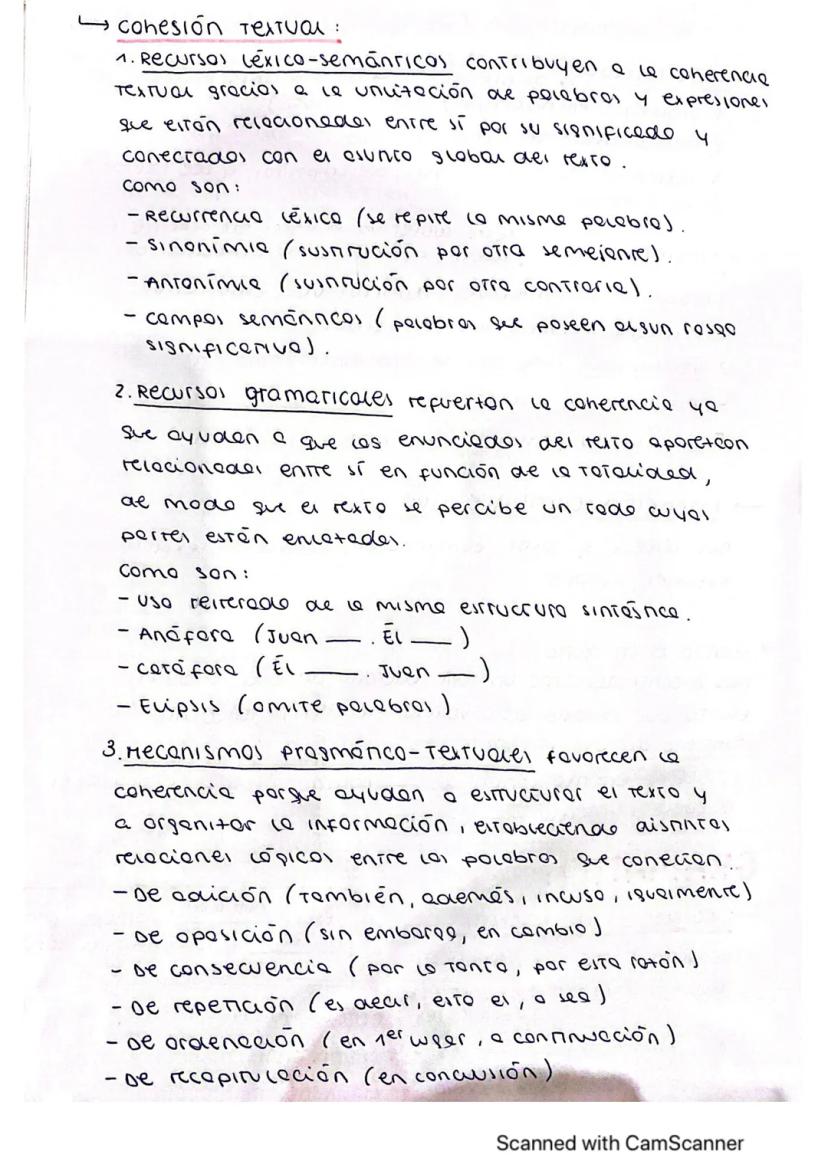 ↳ Cohesión textual:
1. Recursos léxico-semánticos contribuyen a la coherencia
textual gracias a la utilización de palabras y expresiones
que están relacionadas entre sí por su significado y
conectados con el asunto global del texto.
Como son:
- Recurrencia léxica (se repite la misma palabra).
- Sinonímia (sustitución por otra semejante).
- Antonímia (sustitución por otra contraria).
- Campos semánticos (palabras que poseen algun rasgo
significativo).
2. Recursos gramaticales refuerzan la coherencia ya
que ayudan a que los enunciados del texto aparezcan
relacionados entre sí en función de la totalidad,
de modo que el texto se percibe un todo cuyas
partes están enlazadas.
Como son:
- Uso reiterado de la misma estructura sintáctica.
- Anáfora (Juan — . Él —)
- Catáfora (Él — . Juan —)
- Elipsis (omite palabras)
3. Mecanismos pragmático-textuales favorecen la
coherencia porque ayudan a estructurar el texto y
a organizar la información, estableciendo distintas
relaciones lógicas entre las palabras que conectan.
- De adición (también, además, incluso, igualmente)
- De oposición (sin embargo, en cambio)
- De consecuencia (por lo tanto, por esta razón)
- De repetición (es decir, esto es, o sea)
- De ordenación (en 1er lugar, a continuación)
- De recapitulación (en conclusión)
Scanned with CamScanner